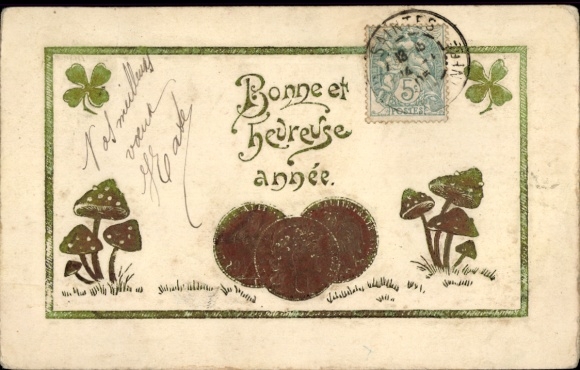 Bonne et
heureuse
année.
Nos meilleurs
vœux
5
POSTES